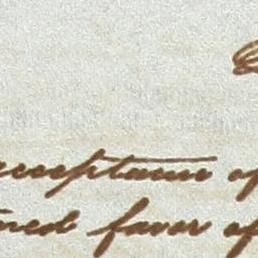 acceptance of
ned favor of